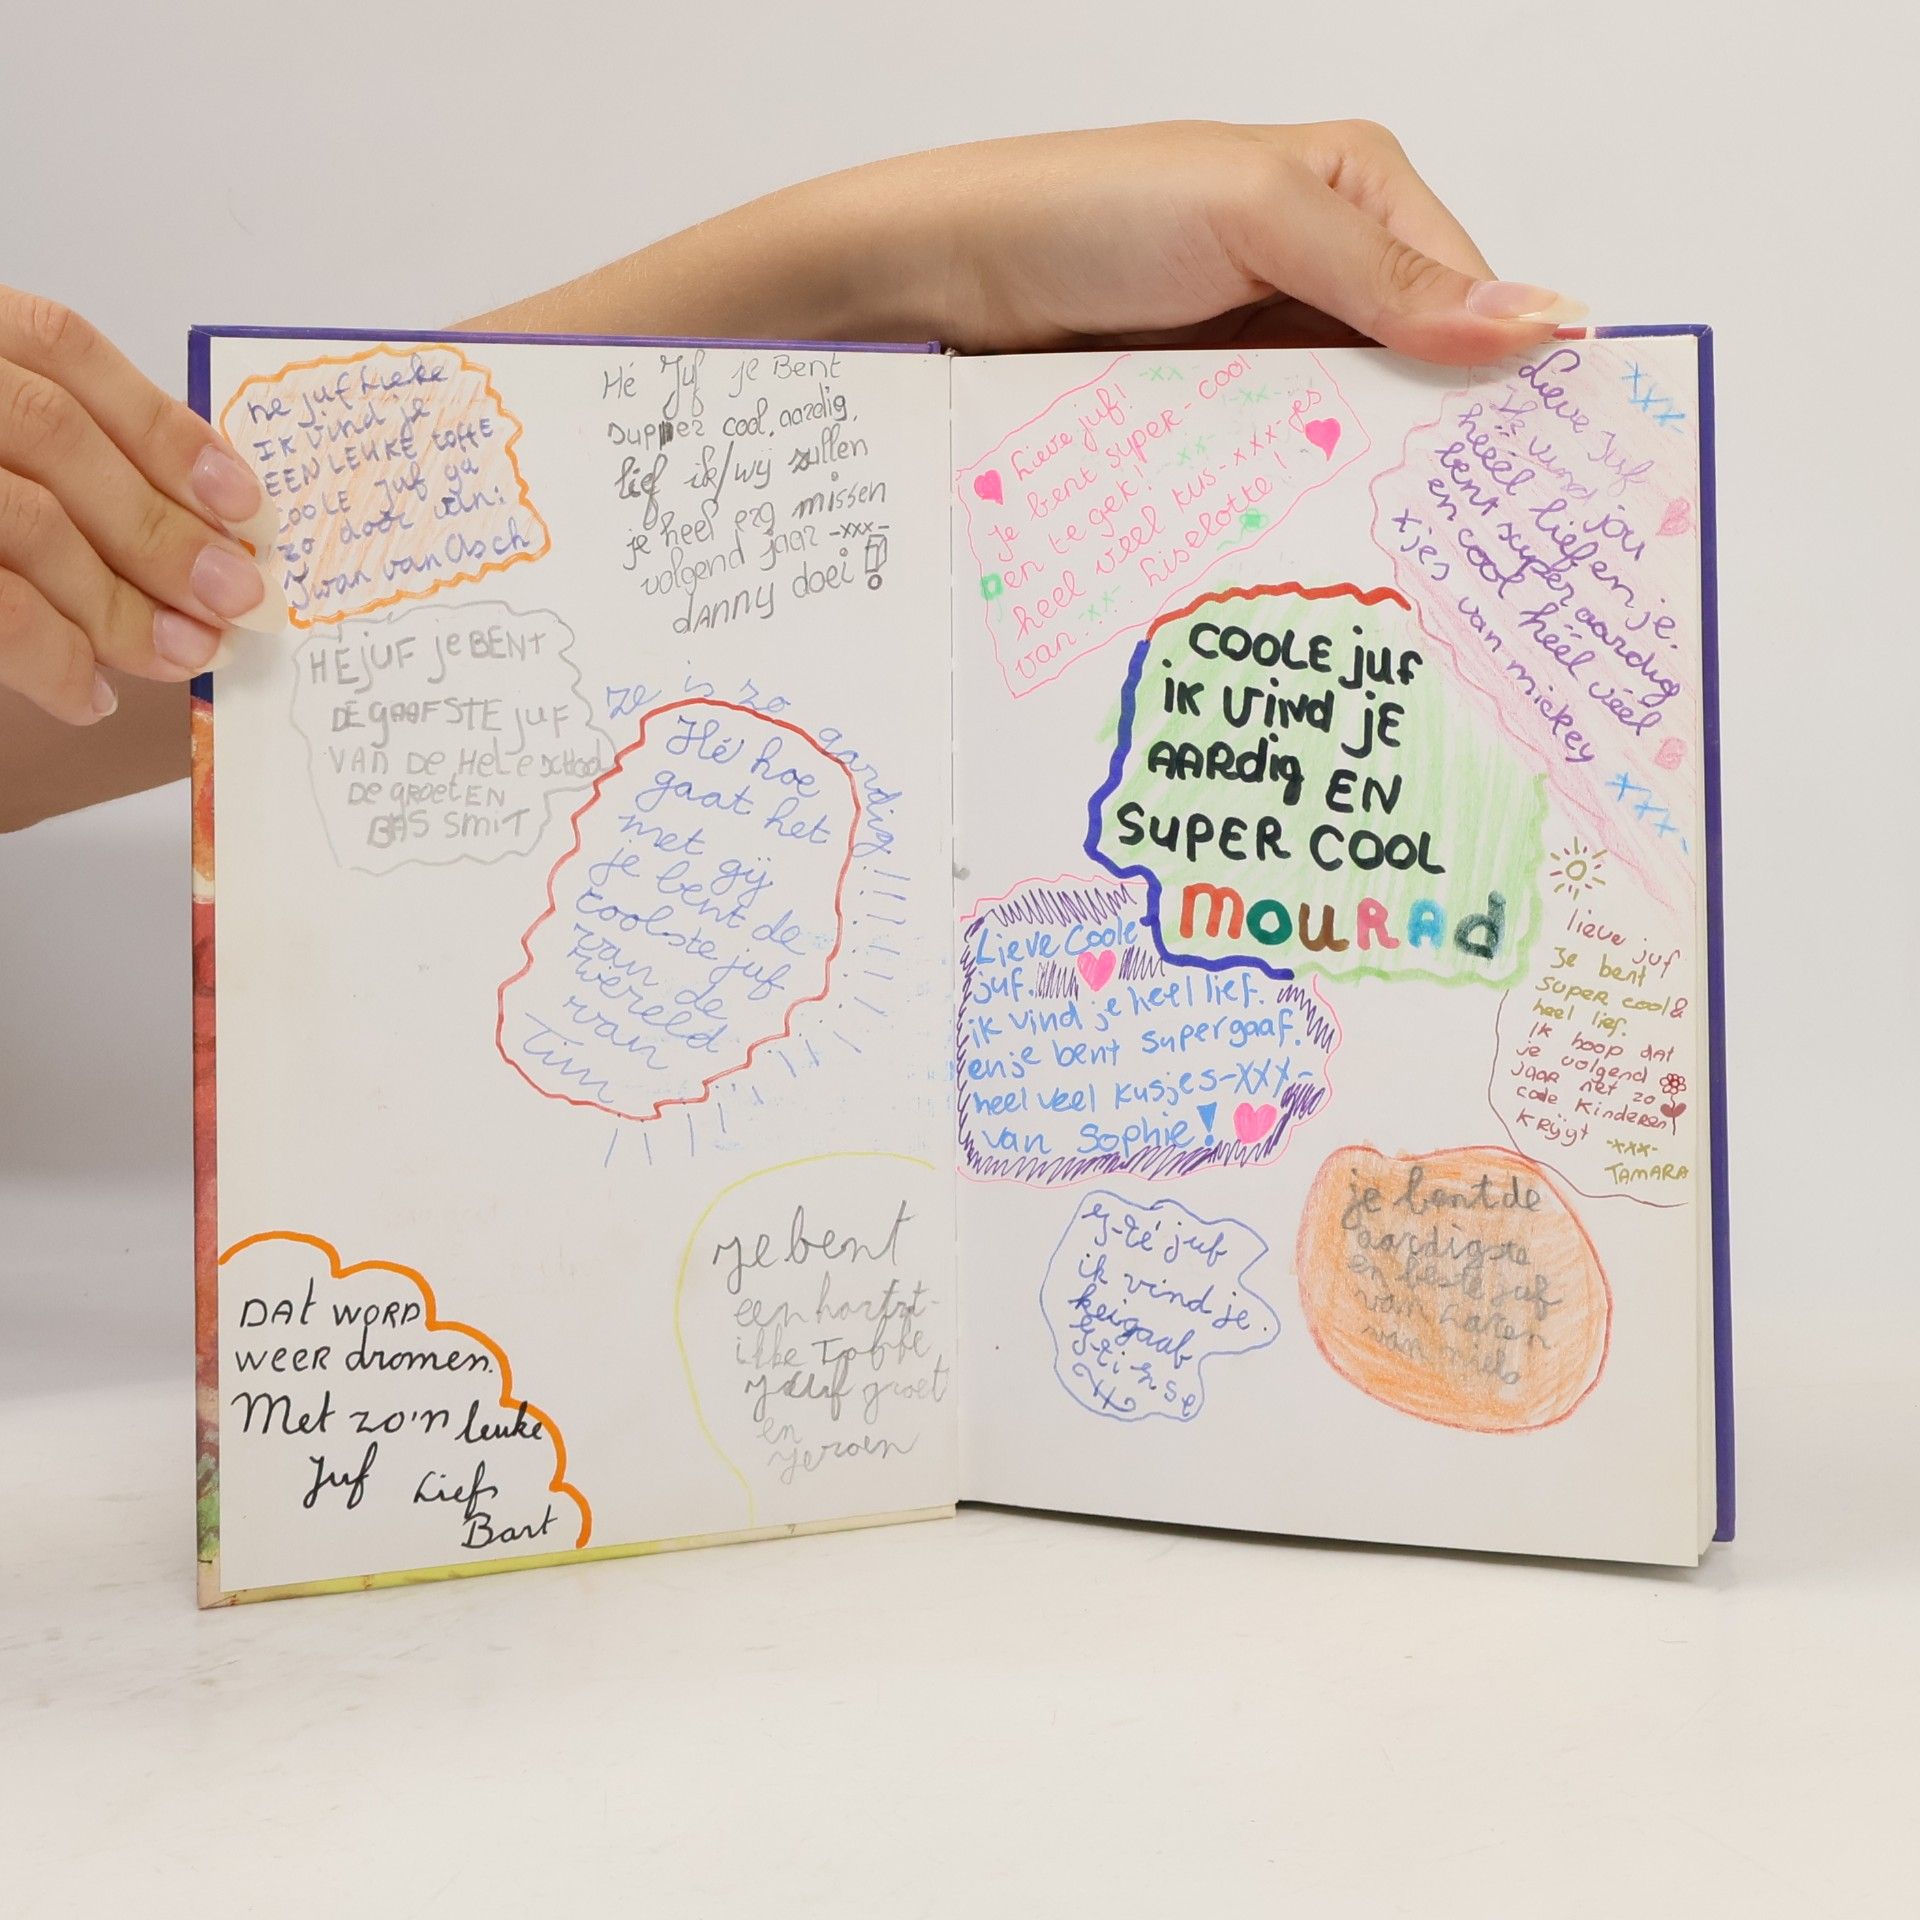 he juf Lieke
IK vind je
EEN LEUKE toffe
COOLE juf ga
zo door van:
Iwan van Asch
Hé Juf je Bent
supper cool, aardig,
lief ik/wij zullen
je heel erg missen
volgend jaar -xxx-
dANNY doei !
HÉ jUF je BENT
DE gAAFSTE juF
VAN DE HeLe school
De groetEN
BAS SmiT
ze is zo aardig!!!!
Hé hoe
gaat het
met gij
je bent de
coolste juf
van de
wereld
van
Tim
DAt WORD
WEER dromen.
Met zo'n leuke
Juf Liefs
Bart
je bent
een hartst-
ikke Toffe
juf groet
en
jeroen
Lieve juf! -xx-
Je bent super-cool -xx-
en te gek! -xx-
heel veel kus-xxx-jes
van -xx- Liselotte!
Lieve Juf xxx-
Ik vind jou
héél lief en je
bent super aardig
en cool héél véél
xjes van mickey
xxx-
COOLE juf
iK Vind jE
AARdig EN
SUPER COOL
mOURAd
Lieve Coole
juf.
ik vind je heel lief.
en je bent supergaaf.
heel veel kusjes-XXX-
van Sophie!
lieve juf
Je bent
super cool &
heel lief.
Ik hoop dat
je volgend
jaar net zo
coole kinderen
krijgt -xxx-
TAMARA
juf
ik vind je
keigaaf
je bent de
aardigste
en beste juf
van Laren
van niels